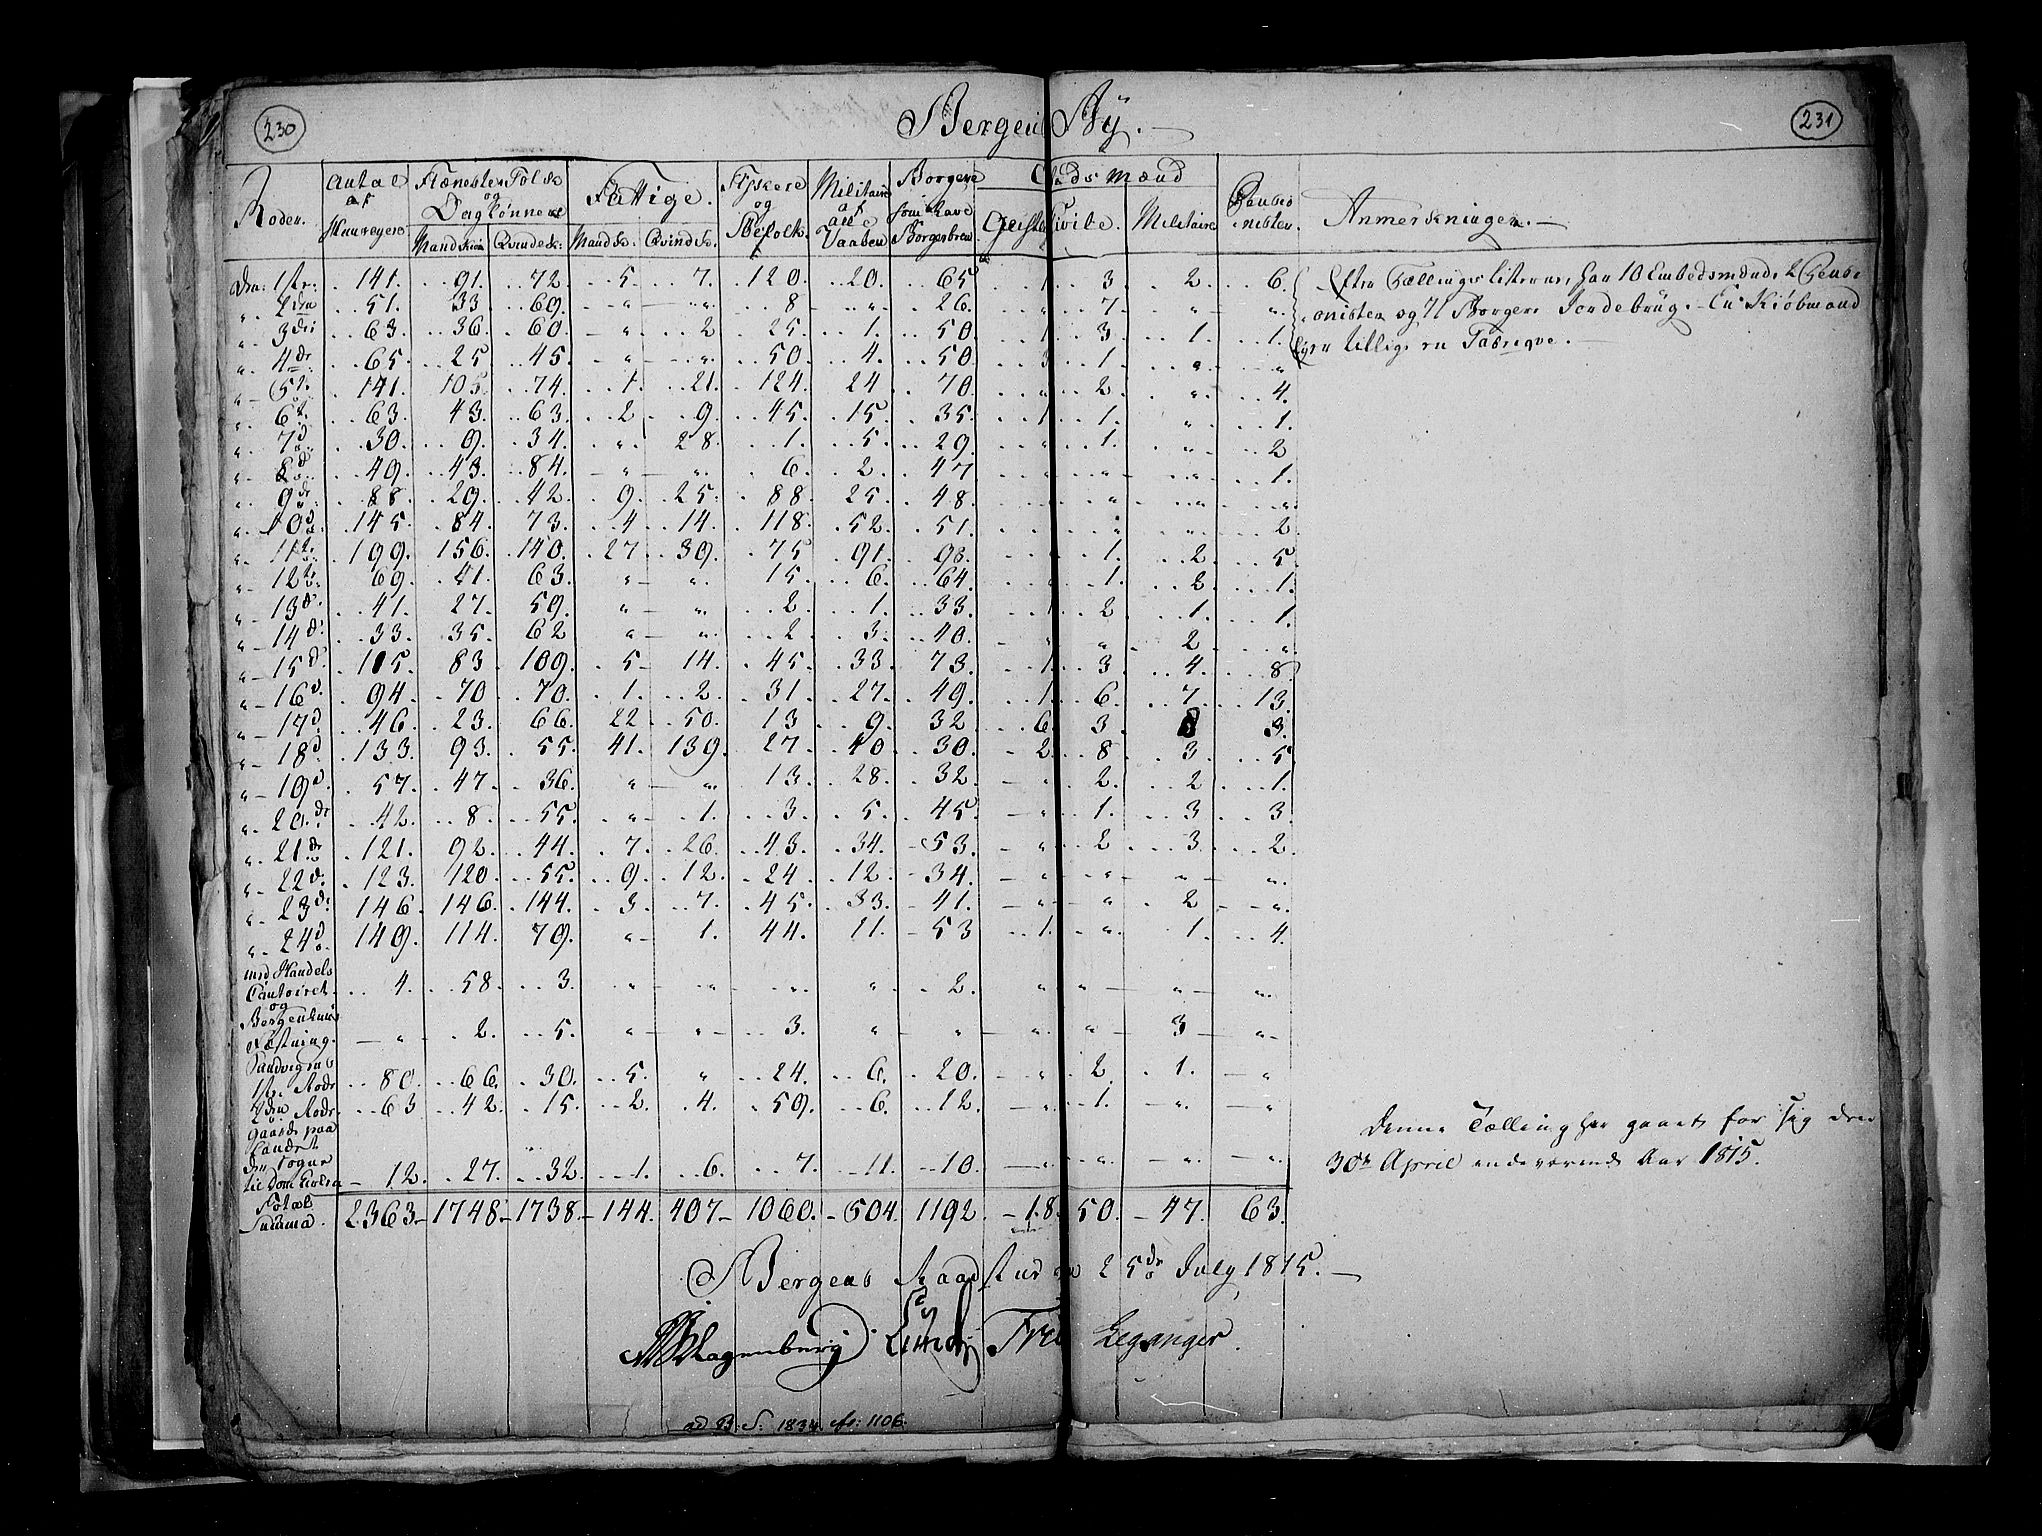 230
Bergens By.
231
Roder.
Antal af Huuseyere
Tienestes Folk og Daglønnere
Mandskiøn
Qvindesk:
Fattige.
Mandsk:
Qvindsk:
Fiskere og Besolk.
Militaire af alle Vaaben
Borgere som have Borgerbrev
Embedsmænd
Geistlige
Civile.
Militaire
Pensionister.
Anmerkninger.
Den 1ste 141. 91. 72. 5. 7. 120. 20. 65 1. 3. 2. 6.
" 2den 51. 33 69. " " 8 " 26. " 7. " "
" 3die 63. 36. 60. " 2 25. 1. 50. 1. 3. 1. 1.
" 4de 65. 25 45. " " 50. 4. 50. 3 1. " "
" 5te 141. 105. 74. 1. 21. 124. 24 70. " 2. " 4.
" 6te 63. 43. 63. 2. 9. 45. 15. 35. 1. 1. " 1.
" 7de 30. 9. 34. " 28. 1. 5. 29. " 1. " 2
" 8de 49. 43. 84. " " 6. 2. 47 " " " 1.
" 9de 88. 29. 42. 9. 25. 88. 25. 48. " " "
" 10de 145. 84. 73. 4 14. 118. 52. 51. " " 2
" 11te 199. 156. 140. 27. 39. 75 91. 98. " 1. 2. 5.
" 12te 69. 41. 63. " " 15. 6. 64 " 1. 2. 1.
" 13de 41. 27. 59. " " 2. 1. 33. 1. 2 1. 1.
" 14de 33. 35. 62 " " 2. 3. 40. " " 2 "
" 15de 105. 83. 109. 5 14. 45. 33. 73. 1. 3. 4. 8.
" 16de 94. 70 70. 1. 2. 31. 27. 49. 1. 6. 7. 13.
" 17de 46. 23. 66. 22 50. 13 9. 32 6. 3. 8 3.
" 18de 133. 93. 55. 41. 139. 27. 40 30. 2. 8. 3. 5
" 19de 57. 47. 36. " " 13. 28. 32. " 2. 2. 1.
" 20de 42. 8. 55. " 1. 3. 5. 45. " 1. 3. 3.
" 21de 121. 92. 44. 7. 26. 43. 34. 53. " 2 3. 2.
" 22de 123. 120. 55. 9. 12. 24 12. 34. " " " "
" 23de 146. 146. 144. 3. 7. 45. 33. 41. " " 2 "
" 24de 149. 114. 79. " 1. 44. 11. 53 1. " 1. 4.
ved Handels
Contoiret. 4. 58. 3. " " " " 2. " " " "
og
Bergenhuus
Fæstning. " 2. 5. " " 3. " " " " 3 "
Sandvigens
1ste Rode 80. 66. 30. 5. " 24. 6. 20. " 2. 1. "
2den Rode 63 42. 15. 2. 4. 59. 6. 12. " 1. " "
Gaarde paa
Landet
den sogne
til Domkirken 12. 27. 32. 1. 6. 7. 11. 10. " " " "
Total
Summa. 2363. 1748. 1738. 144. 407. 1060. 504. 1192. 18. 50. 47. 63.
Efter Tællingslisterne, har 10 Embedsmænd, 2 Pensi-
onister og 71 Borgere Jordebrug. En Kiøbmand
eyer tillige en Fabrique.
Denne Tælling har gaaet for sig den
30te April indeværende Aar 1815.
Bergens Raadstue den 25de July 1815.
Klagenberg Lundh Fred Leganger.
ad B: S: 1834 No: 1106.